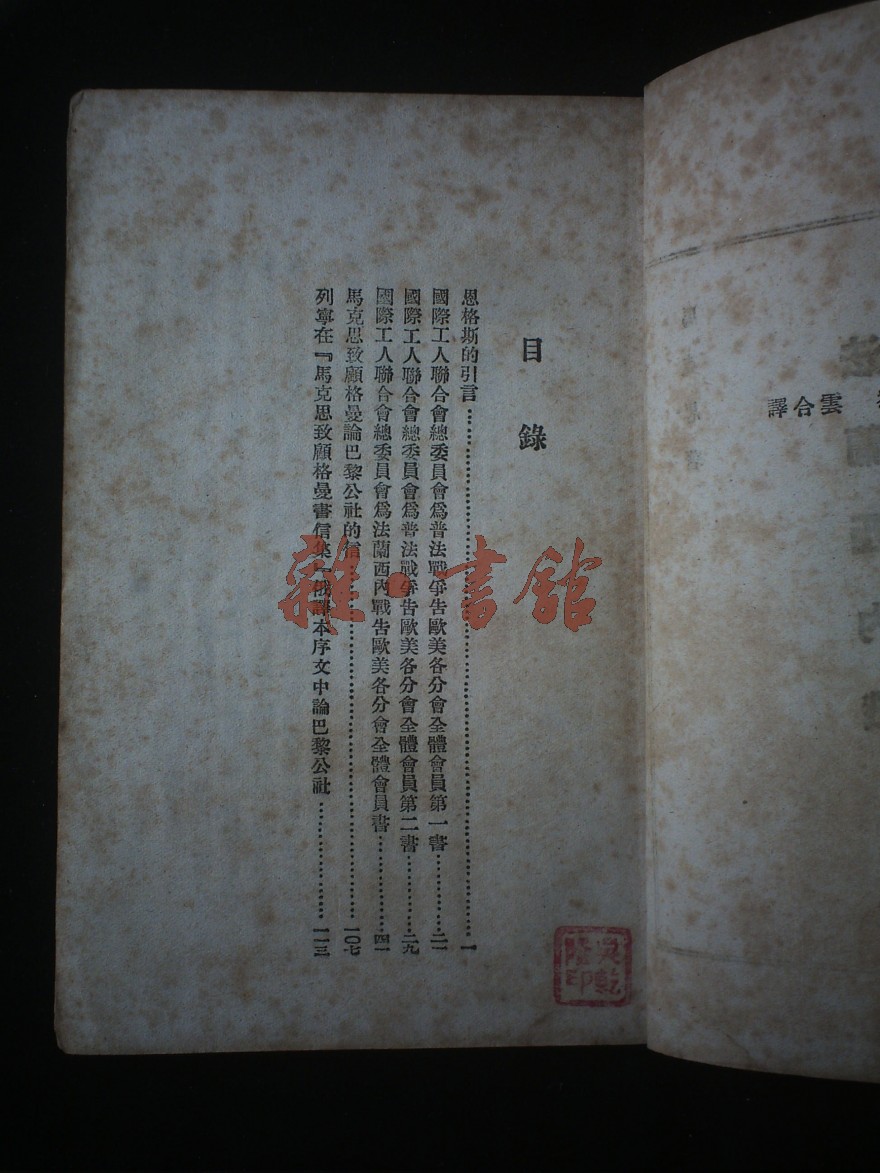 目錄
恩格斯的引言……一
國際工人聯合會總委員會為普法戰爭告歐美各分會全體會員第一書……二一
國際工人聯合會總委員會為普法戰爭告歐美各分會全體會員第二書……二九
國際工人聯合會總委員會為法蘭西內戰告歐美各分會全體會員書……四一
馬克思致顧格曼論巴黎公社的信……一〇七
列寧在『馬克思致顧格曼書信集』俄譯本序文中論巴黎公社……一一三
雜·書館
吳乾
印
雲合譯